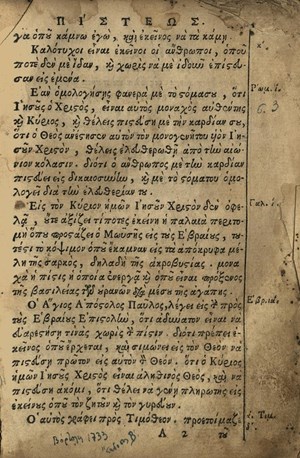 ΠΙΣΤΕΩΣ.
γα ὁποῦ κάμνω ἐγὼ, καὶ ἐκεῖνος νὰ τὰ κάμῃ.
Καλότυχοι εἶναι ἐκεῖνοι οἱ ἄνθρωποι, ὁποῦ
ποτὲ δὲν μὲ ἴδαν, καὶ χωρὶς νὰ μὲ ἰδοῦν ἐπίστευ-
σαν εἰς ἐμένα.
Ἐὰν ὁμολογήσῃς φανερὰ μὲ τὸ στόμα σου, ὅτι
Ἰησοῦς ὁ Χριστὸς, εἶναι αὐτὸς μοναχὸς αὐθέντης
καὶ Κύριος, καὶ θέλεις πιστεύσῃ μὲ τὴν καρδίαν σου,
ὅτι ὁ Θεὸς ἀνέστησεν αὐτὸν τὸν μονογενῆ του υἱὸν Ἰη-
σοῦν Χριστὸν, θέλεις ἐλευθερωθῆ ἀπὸ τὴν αἰώ-
νιον κόλασιν. διότι ὁ ἄνθρωπος μὲ τὴν καρδίαν
πιστεύει εἰς δικαιοσύνην, καὶ μὲ τὸ στόμα ὁμο-
λογεῖ διὰ τὴν ἐλευθερίαν του.
Εἰς τὸν Κύριον ἡμῶν Ἰησοῦν Χριστὸν δὲν ὀφε-
λᾷ, οὔτε ἀξίζει τίποτες ἐκείνη ἡ παλαιὰ περιτο-
μὴ ὁποῦ προστάζει ὁ Μωυσῆς εἰς τοὺς Ἑβραίους, του-
τέστι τὸ κόψιμον ὁποῦ ἔκαμναν εἰς τὰ ἀπόκρυφα μέ-
λη τῆς σαρκὸς, δηλαδὴ τῆς ἀκροβυστίας. μονα-
χὰ ἡ πίστις ἡ ὁποία ἐνεργᾷ καὶ ὁποῦ εἶναι πρόξενος
τῆς βασιλείας τῶν οὐρανῶν μέσῃ τῆς ἀγάπης.
Ὁ Ἅγιος Ἀπόστολος Παῦλος, λέγει εἰς τὴν πρὸς
τοὺς Ἑβραίους Ἐπιστολὴν, ὅτι ἀδύνατον εἶναι νὰ
εὐαρεστήσῃ τινὰς χωρὶς πίστιν. διότι πρέπει ἐ-
κεῖνος ὁποῦ ἔρχεται, καὶ σιμώνει εἰς τὸν Θεὸν νὰ
πιστεύσῃ πρῶτον εἰς αὐτὸν τὸν Θεόν. ὅτι ὁ Κύριος
ἡμῶν Ἰησοῦς Χριστὸς εἶναι ἀληθινὸς Θεὸς, καὶ νὰ
πιστεύσῃ ἀκόμι, ὅτι θέλει νὰ γένῃ πληρωτὴς εἰς
ἐκείνους ὁποῦ τὸν ζητοῦν καὶ τὸν γυρεύουν.
Ὁ αὐτὸς γράφει πρὸς Τιμόθεον. προετοιμάζ
Α 2
Ῥωμ. ί.
6.3
Γαλ. έ.
Ἑβρ. ιά.
ά. Τιμ.
1733